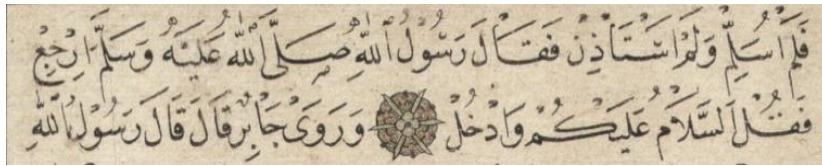 فَلَمْ اُسَلِّمْ وَلَمْ اَسْتَأْذِنْ فَقَالَ رَسُوْلُ اللّٰهِ صَلَّى اللّٰهُ عَلَيْهِ وَسَلَّمَ اِرْجِعْ
فَقُلْ اَلسَّلَامُ عَلَيْكُمْ وَادْخُلْ وَرَوٰى جَابِرٌ قَالَ قَالَ رَسُوْلُ اللّٰهِ